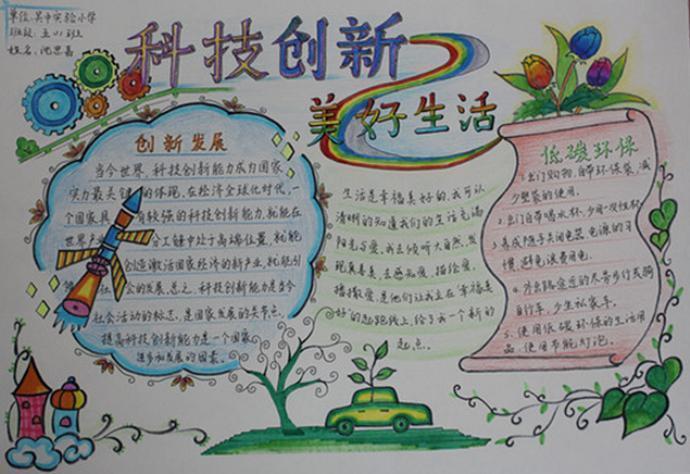 单位:吴中实验小学
班级:五(1)班
姓名:沈思嘉
科技创新
美好生活
创新发展
当今世界,科技创新能力成为国家
实力最关键的体现。在经济全球化时代,一
个国家具 有较强的科技创新能力,就能在
世界产 分工链中处于高端位置,就能
创造激活国家经济的新产业,就能引
社 会的发展。总之,科技创新能力是当今
社会活动的标志,是国家发展的关节点。
提高科技创新能力是一个国家
进步和发展的因素。
生活是幸福美好的,我可以
清晰的知道我们的生活充满
阳光与爱。我去倾听大自然,发
现真善美,去感知爱,描绘爱,
播撒爱,是他们让我立在"幸福美
好"的起跑线上,给了我一个新的
起点。
低碳环保
1.出门购物,自带环保袋,减
少塑袋的使用。
2.出门自带喝水杯,少用一次性杯
3.养成随手关闭电器电源的习
惯,避免浪费用电。
4.外出路途近的尽量步行或骑
自行车,少坐私家车。
5.使用低碳环保的生活用
品,使用节能灯泡。